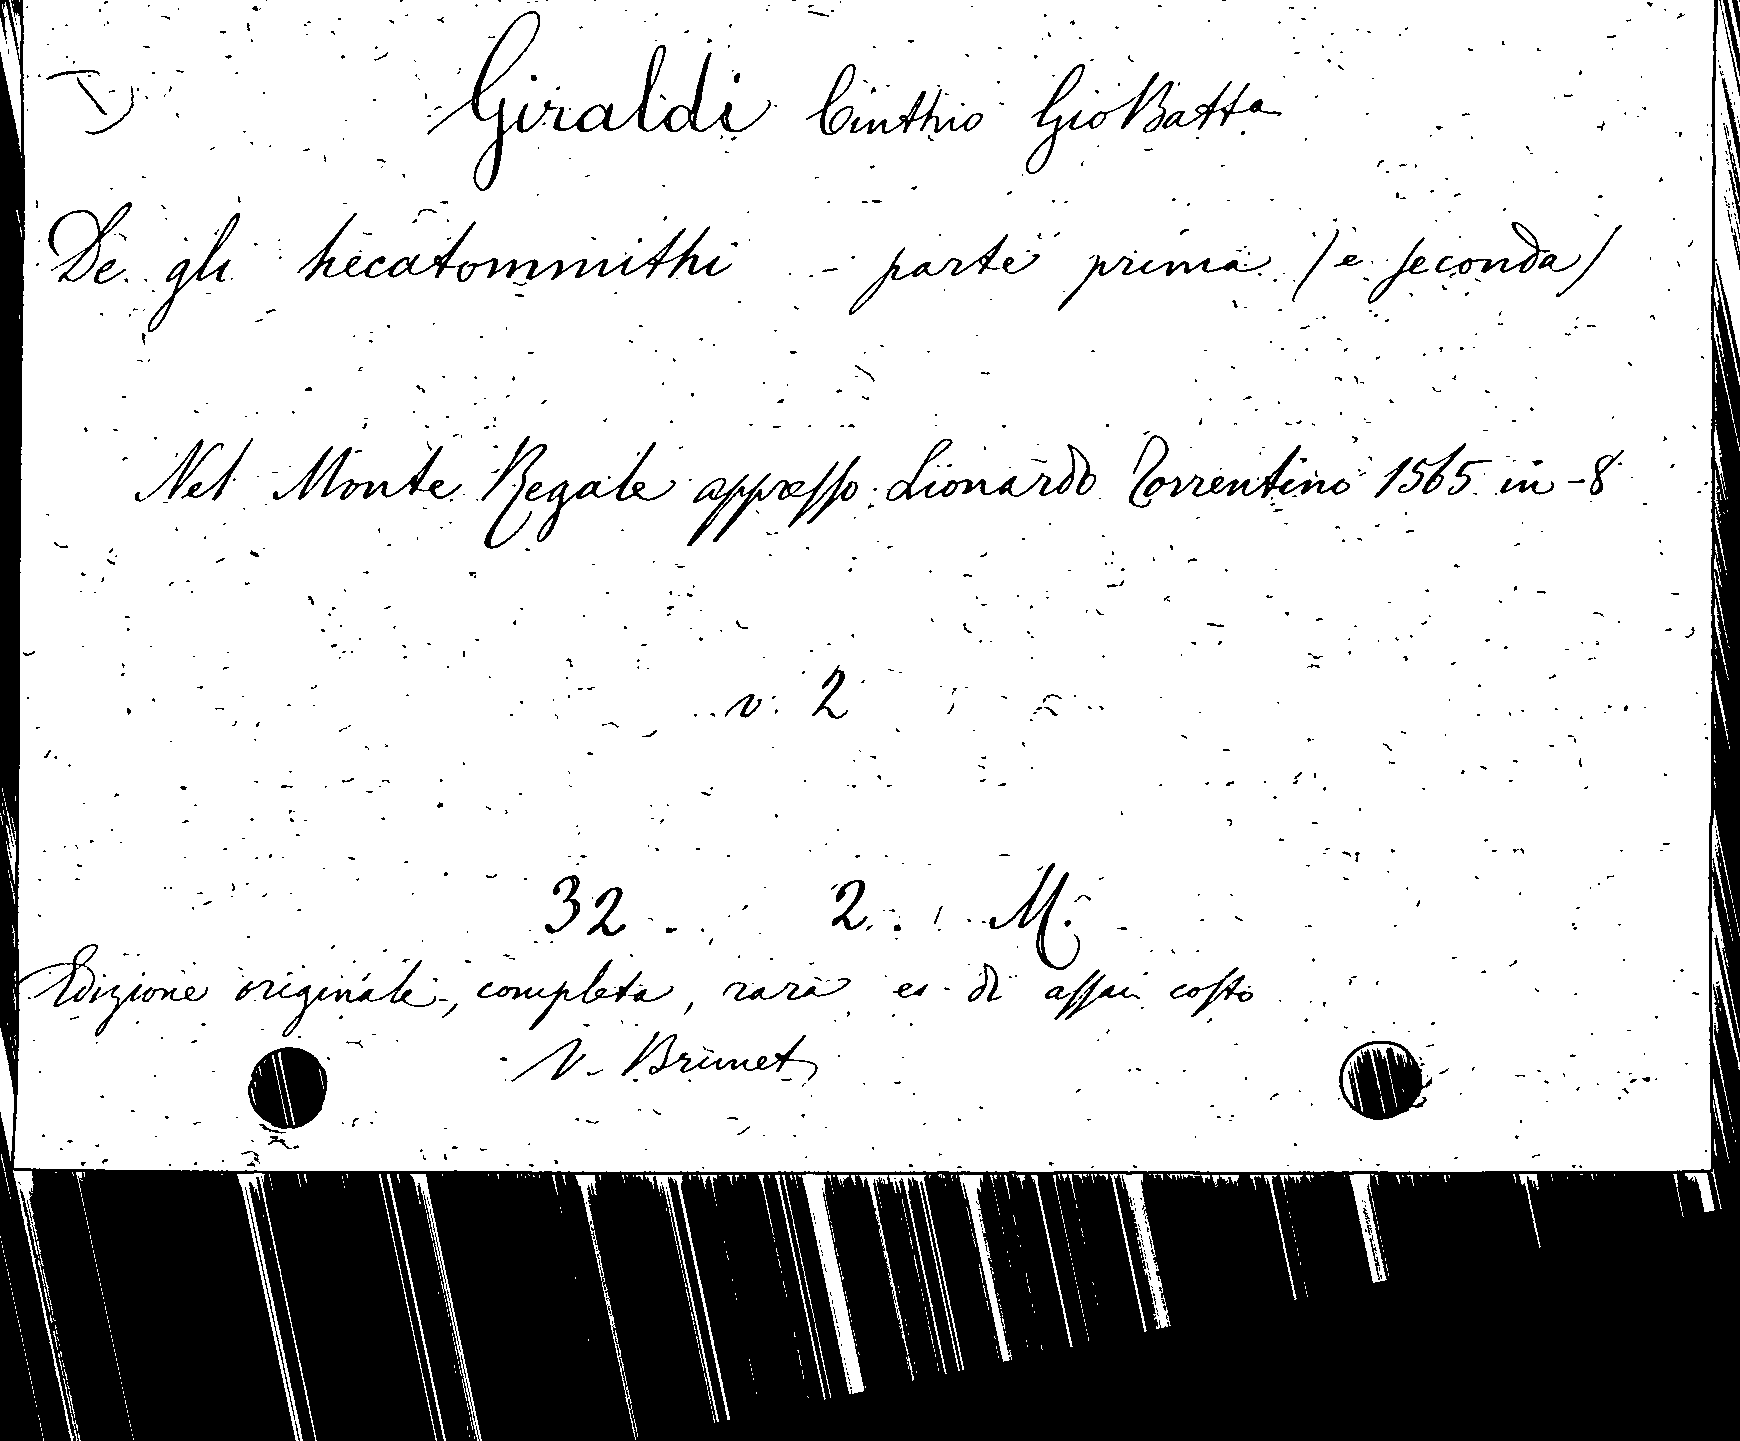 Giraldi Cinthio GioBatta
De gli hecatommithi - parte prima (e seconda)
Nel Monte Regale appresso Lionardo Torrentino 1565 in-8
v. 2
32. 2. M.
Edizione originale, completa, rara es di assai costo
V. Brunet